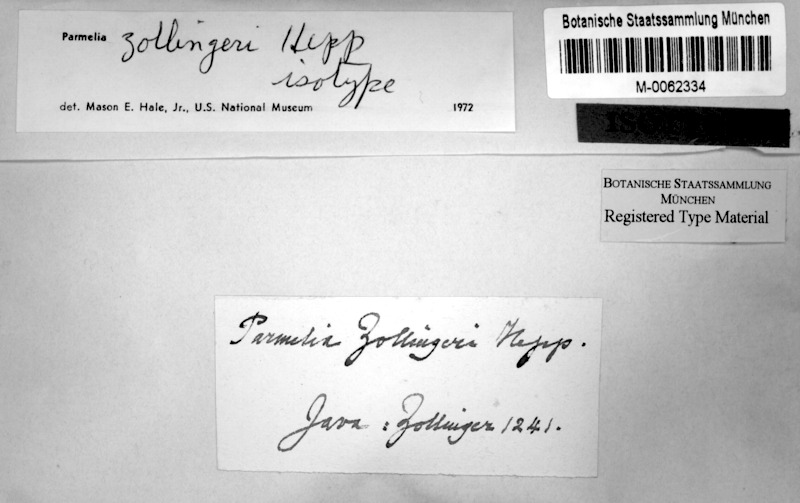 Parmelia zollingeri Hepp
isotype
det. Mason E. Hale, Jr., U.S. National Museum 1972
Botanische Staatssammlung München
M-0062334
BOTANISCHE STAATSSAMMLUNG
MÜNCHEN
Registered Type Material
Parmelia Zollingeri Hepp.
Java : Zollinger 1241.